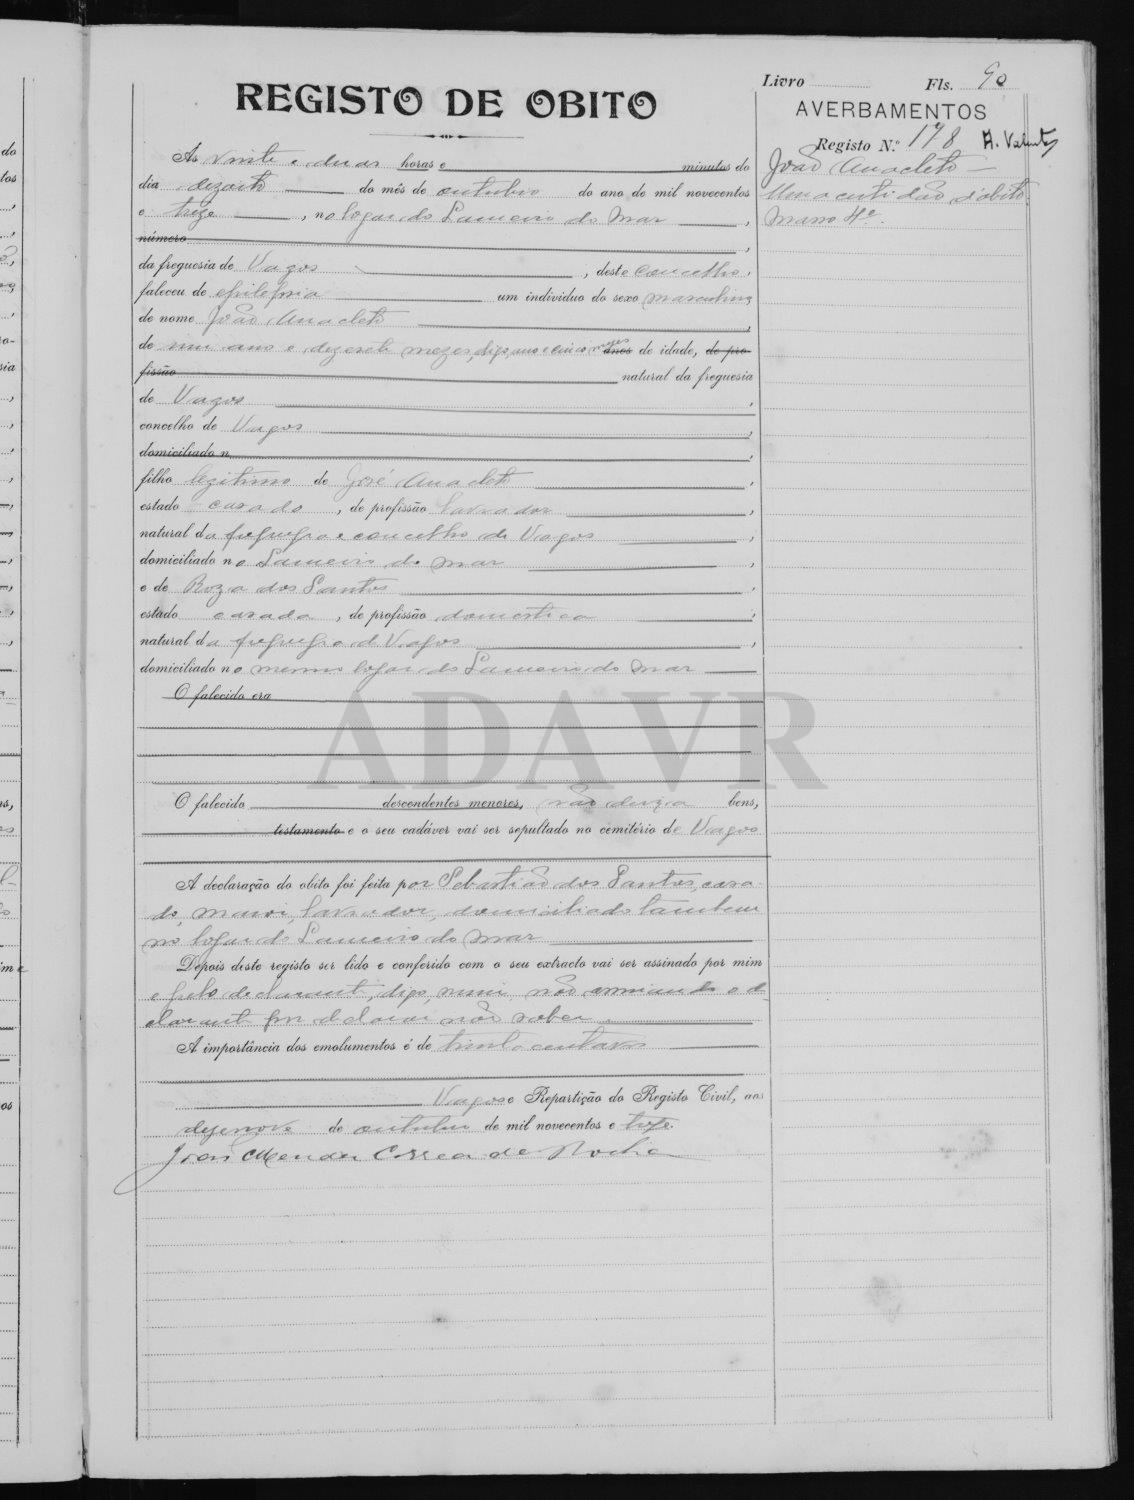 Livro Fls. 90
REGISTO DE OBITO
AVERBAMENTOS
Registo N.º 178 A. Valente
João Anacleto
d'obito
Ás vinte e duas horas e minutos do
dia dezoito do mês de outubro do ano de mil novecentos
e treze, no logar do Lameiro do Mar,
número,
da freguesia de Vagos, deste concelho,
faleceu de epilepsia um individuo do sexo masculino
de nome João Anacleto,
de um ano e dezesete mezes, digo, ano e cinco mezes anos de idade, de pro-
fissão natural da freguesia
de Vagos,
concelho de Vagos,
domiciliado n,
filho legitimo de José Anacleto,
estado casado, de profissão lavrador,
natural da freguesia e concelho de Vagos,
domiciliado no Lameiro do Mar,
e de Roza dos Santos,
estado casada, de profissão domestica,
natural da freguesia de Vagos,
domiciliado no mesmo logar do Lameiro do Mar
O falecido era
ADAVR
O falecido descendentes menores, não deixa bens,
testamento e o seu cadáver vai ser sepultado no cemitério de Vagos
A declaração do obito foi feita por Sebastião dos Santos, casa-
do, maior, lavrador, domiciliado tambem
no logar do Lameiro do Mar
Depois deste registo ser lido e conferido com o seu extracto vai ser assinado por mim
e pelo declarante, digo, mim, não assinando o de-
clarante por declarar não saber.
A importância dos emolumentos é de trinta centavos
Vagos e Repartição do Registo Civil, aos
dezenove de outubro de mil novecentos e treze.
João Mendes Correa da Rocha